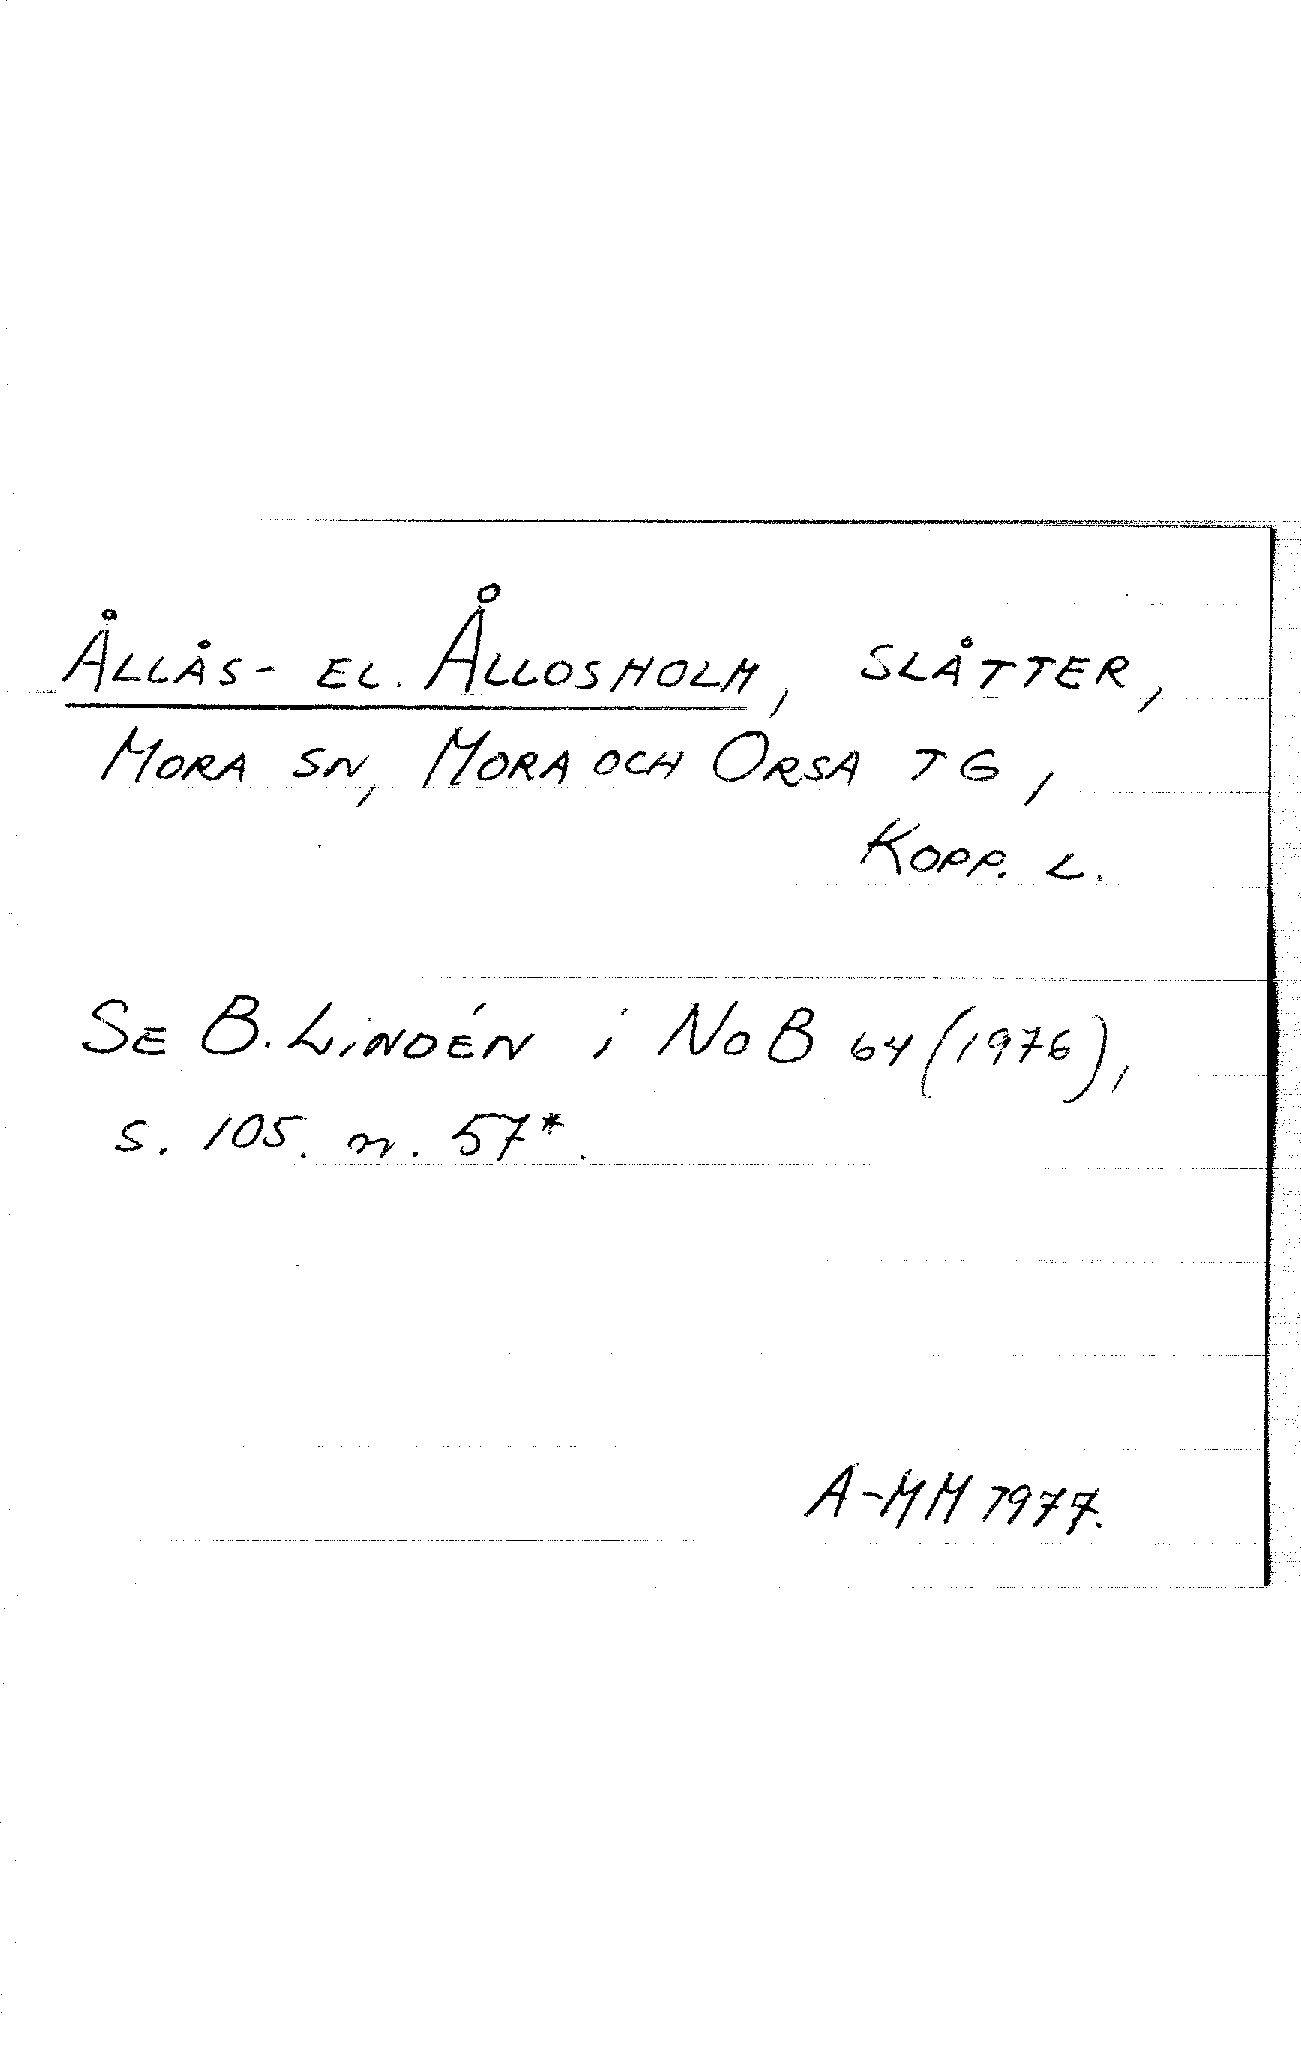 Ållås- el. Ållosholm, slåtter,
Mora sn, Mora och Orsa tg,
Kopp. l.
Se B. Lindén i NoB 64 (1976),
s. 105. n. 57*.
A-MM 1977.